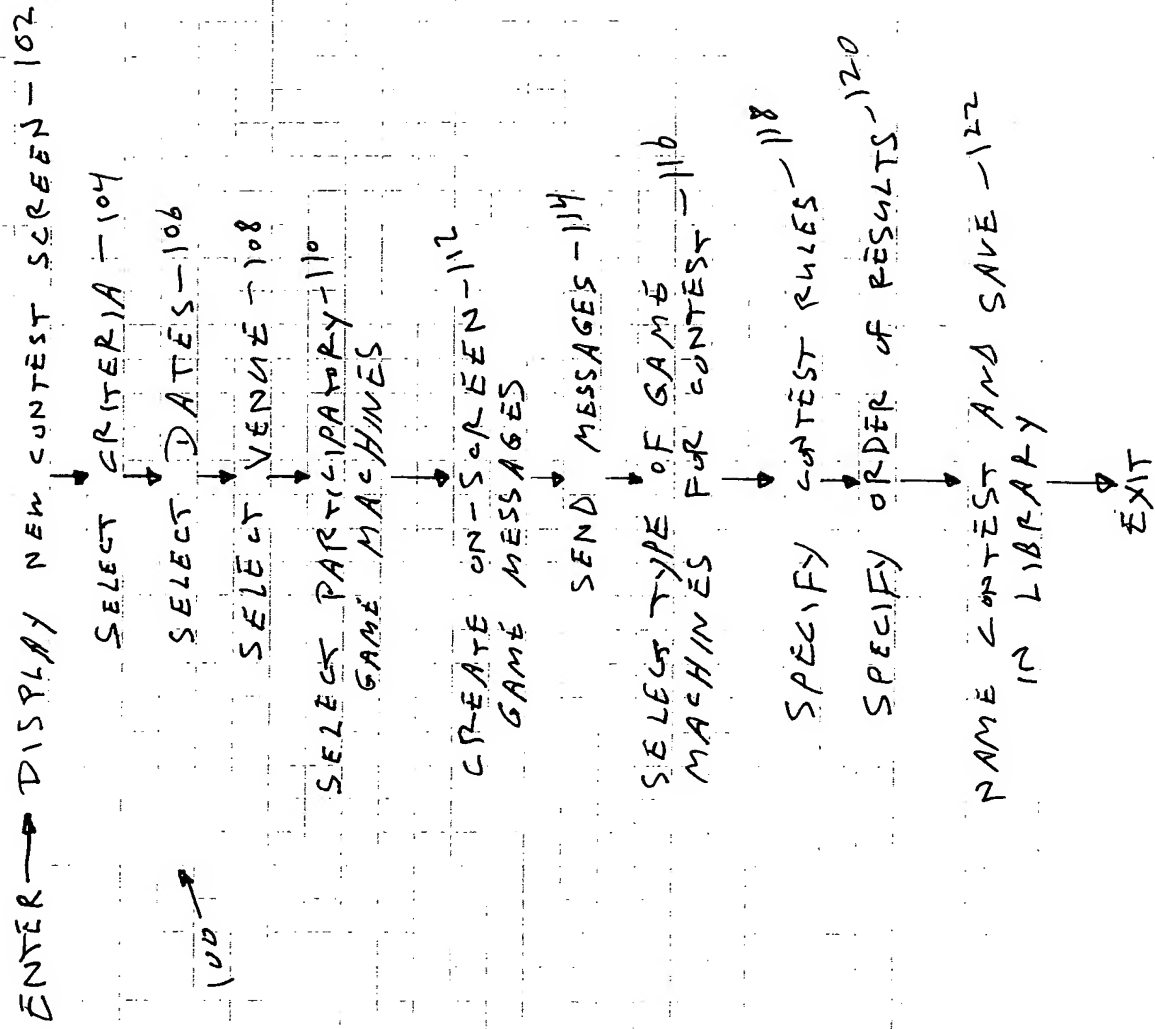 ENTER → DISPLAY NEW CONTEST SCREEN - 102
SELECT CRITERIA - 104
100
SELECT DATES - 106
SELECT VENUE - 108
SELECT PARTICIPATORY - 110
GAME MACHINES
CREATE ON-SCREEN - 112
GAME MESSAGES
SEND MESSAGES - 114
SELECT TYPE OF GAME
MACHINES FOR CONTEST - 116
SPECIFY CONTEST RULES - 118
SPECIFY ORDER OF RESULTS - 120
NAME CONTEST AND SAVE - 122
IN LIBRARY
EXIT